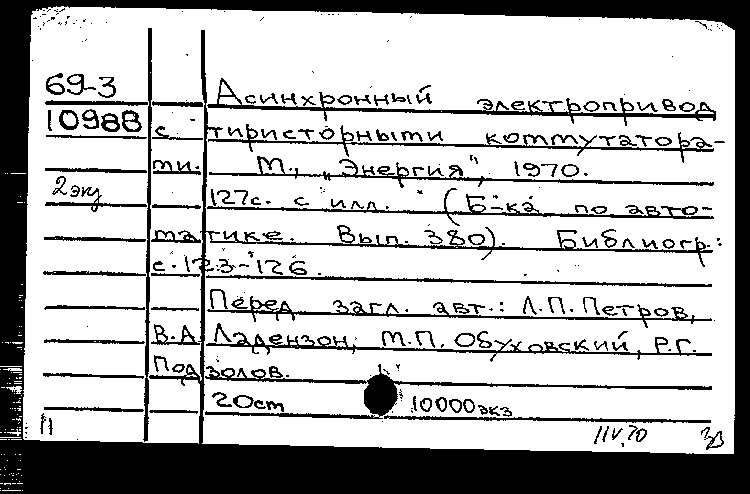 69-3
Асинхронный электропривод
10988 с тиристорными коммутатора-
ми. М., „Энергия", 1970.
2 экз
127с. с илл. (Б-ка по авто-
матике. Вып. 380). Библиогр.:
с.123-126.
Перед загл. авт.: Л.П.Петров,
В.А. Ладензон, М.П. Обуховский, Р.Г.
Подзолов.
20ст 10000экз
11 IIV.70 ЗВ